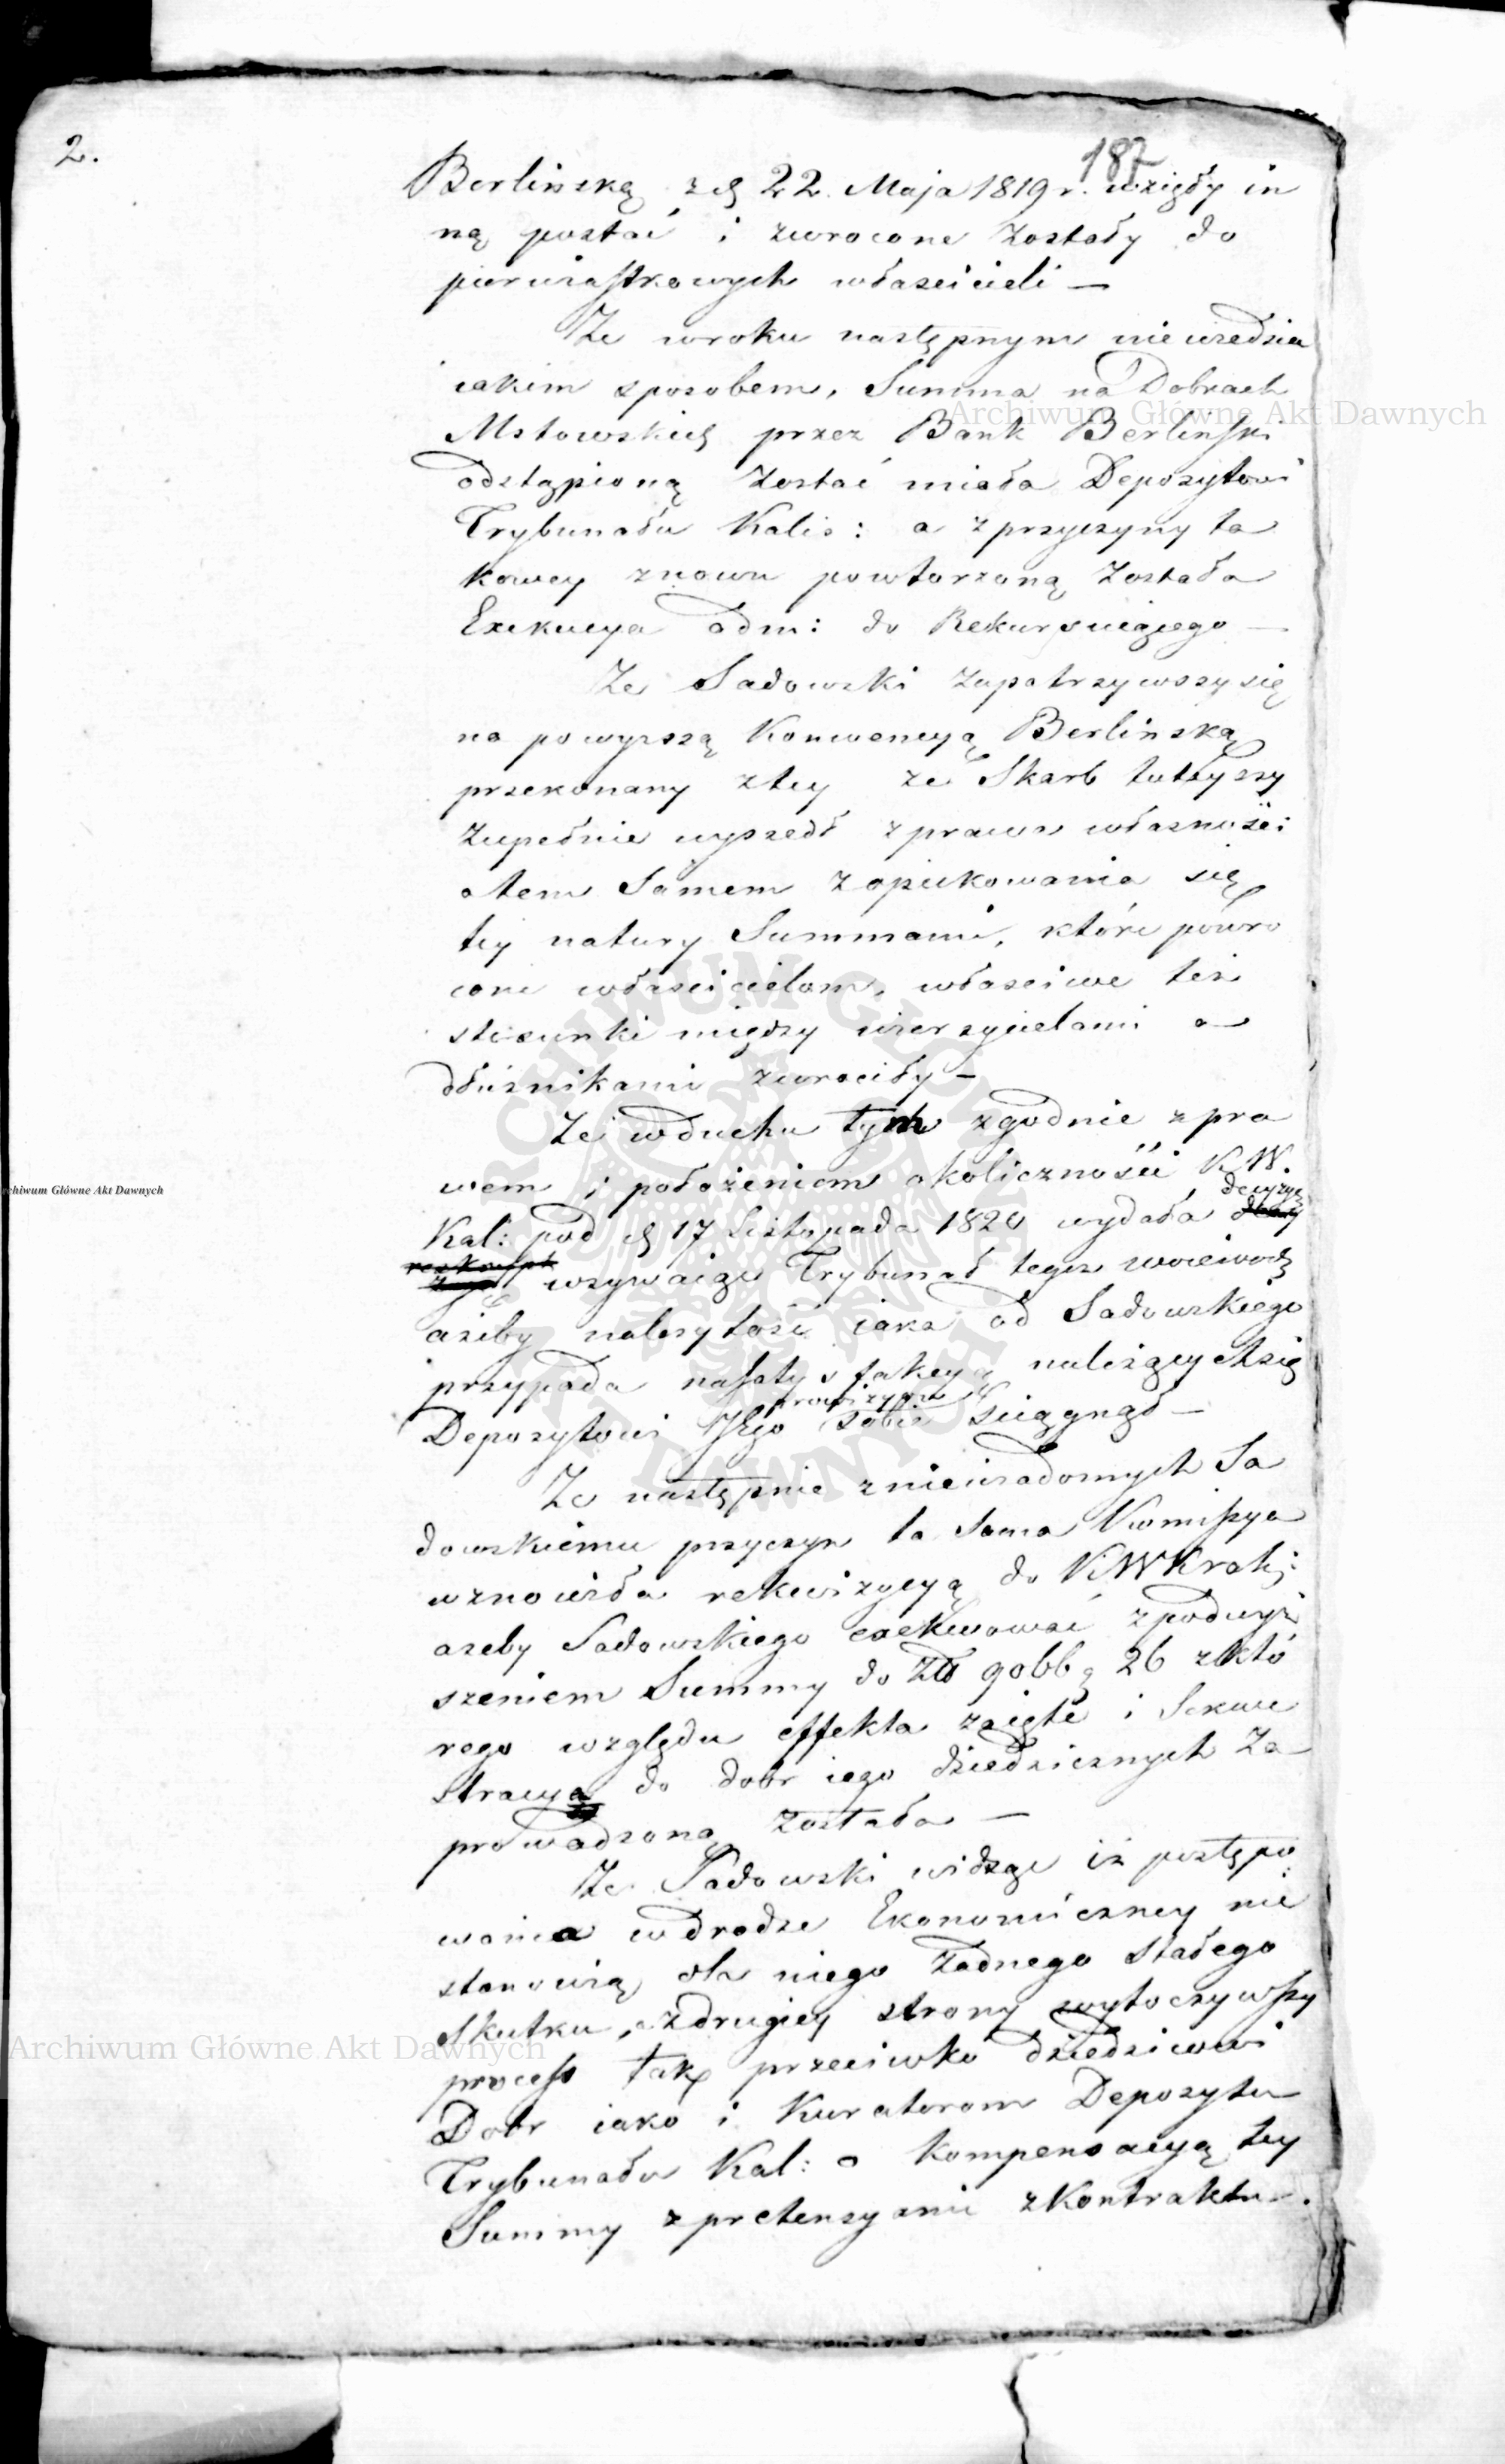 2.
187
Berlinską z d 22. Maja 1819 r. wzięły in
ną postać i zwrocone zostały do
pierwiastkowych właścicieli —
Ze w roku następnym nie wiedzieć
iakim sposobem, Summa na Dobrach
Mstowskich przez Bank Berliński
odstąpioną zostać miała Depozytowi
Trybunału Kalis: a z przyczyny ta
kowey znowu powtorzoną została
Exekucya adm: do Rekursuiącego —
Ze Sadowski zapatrzywszy się
na powyzszą Konwencyą Berlinską
przekonany z tey ze Skarb tuteyszy
zupełnie wyszedł z prawa własności
a tem samem z opiekowania się
tey natury Summami, które powro
cone właścicielom, właściwe też
stosunki między wierzycielami a
dłuznikami zwrociły —
Ze w duchu tym zgodnie z pra
wem i położeniem okoliczności K. W.
decyzyę
Kal: pod d 17 Listopada 1820 wydała
wzywaiąc Trybunał tegoz woiewodz
azeby nalezytość iaka od Sadowskiego
przypada na satysfakcyą nalezących się
prowizyow
Depozytowi Jego sobie ściągnął —
Ze następnie z niewiadomych Sa
dowskiemu przyczyn ta sama Kommissya
wznowiła rekwizycyą do K. W. Krak:
azeby Sadowskiego exekwować z podwyż
szeniem Summy do Zł 9066 g 26 z któ
rego względu effekta zaięte i Sekwe
stracya do dobr iego dziedzicznych za
prowadzoną została —
Ze Sadowski widząc iż postępo
wania w drodze Ekonomiczney nie
stanowią dla niego żadnego stałego
skutku, a z drugiey strony wytoczywszy
process tak przeciwko dziedzicowi
Dobr iako i Kuratorom Depozytu
Trybunału Kal: o kompensacyą tey
Summy z pretensyami z Kontraktu
Archiwum Główne Akt Dawnych
Archiwum Główne Akt Dawnych
chiwum Główne Akt Dawnych
ARCHIWUM GŁÓWNE AKT DAWNYCH